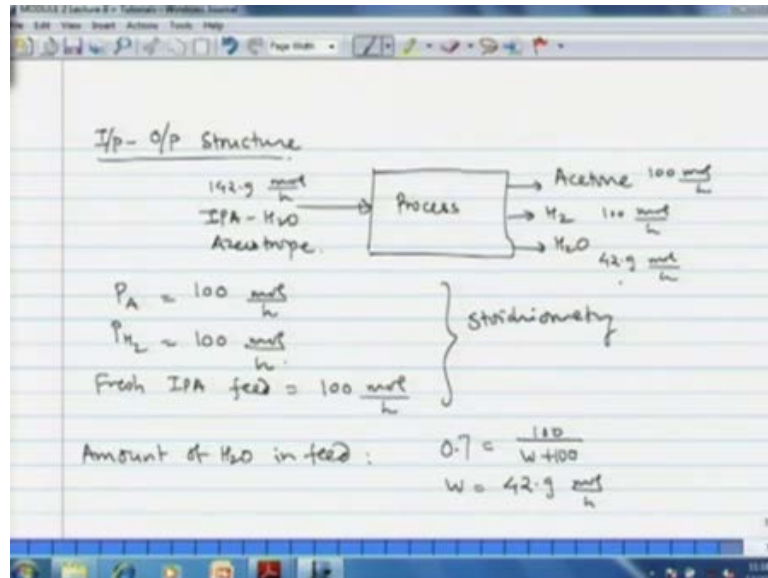 MODULE 2 Lecture 8 - Tutorials - Windows Journal
File Edit View Insert Actions Tools Help
Page Width
I/p - O/p Structure
142.9 mol/h
IPA - H2O
Azeotrope.
Process
Acetone 100 mol/h
H2 100 mol/h
H2O
42.9 mol/h
PA = 100 mol/h
PH2 = 100 mol/h.
Fresh IPA feed = 100 mol/h
Stoichiometry
Amount of H2O in feed : 0.7 = 100/W+100
W = 42.9 mol/h